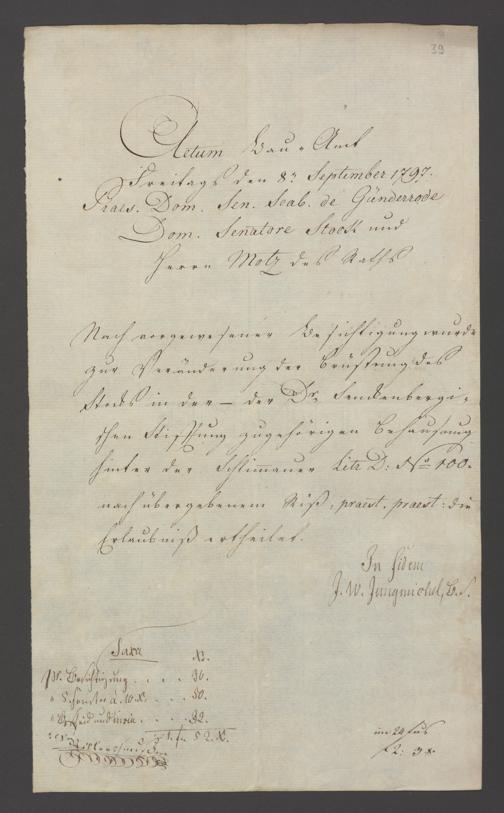 39
Actum Bau-Amt
Freitags den 8n September 1797.
Praes. Dom. Sen. Scab. de Günderrode
Dom. Senatore Stock und
Herrn Motz des Raths
Nach vorgewesener Besichtigung wurde
zur Veränderung der Brüstung des
Stocks in der — der Dr. Senckenbergi-
schen Stiftung zugehörigen Behausung
hinter der Schlimmauer Litr. D: No. 100.
nach übergebenem Riß, praest. praest: die
Erlaubniß ertheilet.
In fidem
J. W. Jungmichel, B. S.
Taxa
Besichtigung . . . . 30.
à 10 X. . . . 50.
Bescheid und . . . 32.
52 X.
im 24 Fus
f 2: 3 X